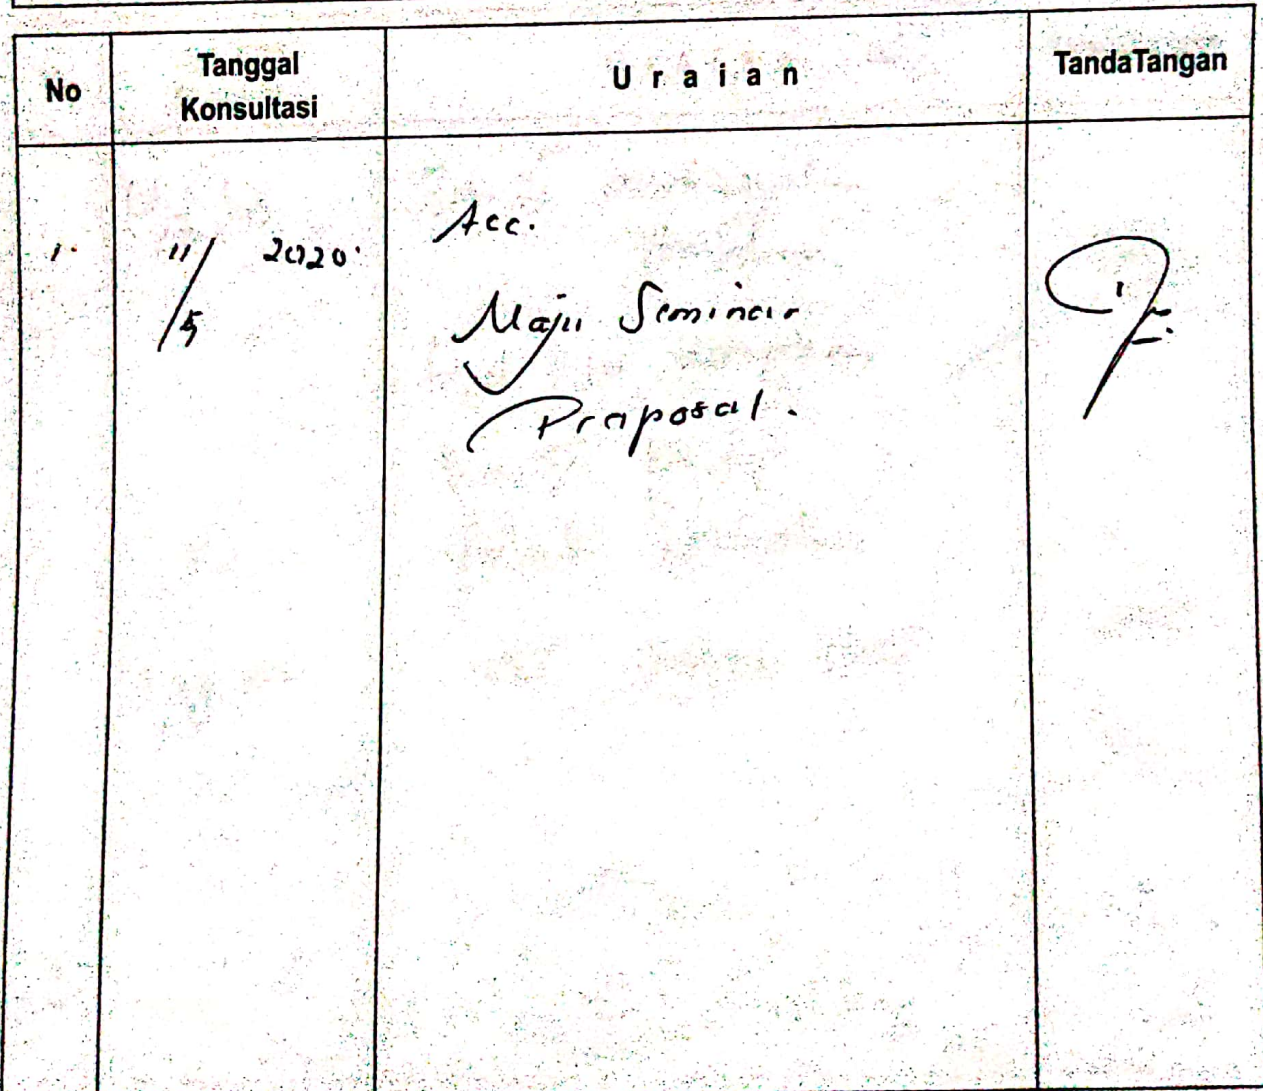 No
Tanggal
Konsultasi
Uraian
TandaTangan
1.
11/5 2020
Acc.
Maju Seminar
Proposal.